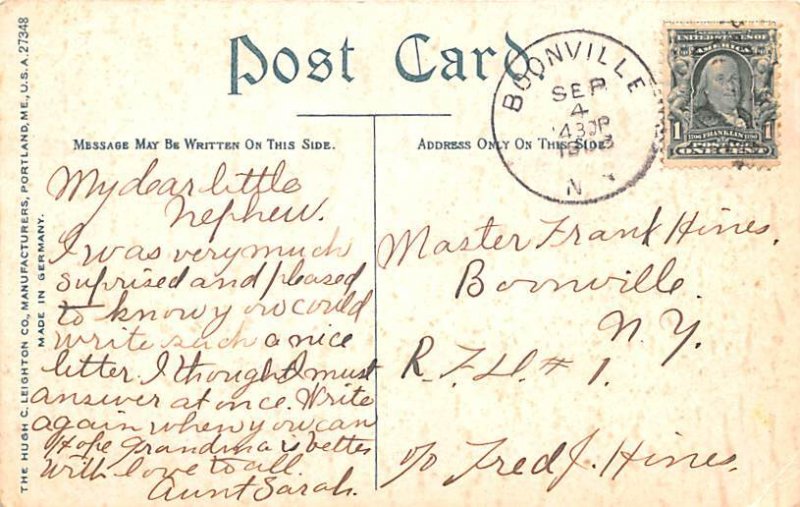 THE HUGH C. LEIGHTON CO., MANUFACTURERS, PORTLAND, ME., U.S.A. 27348
MADE IN GERMANY.
Post Card
MESSAGE MAY BE WRITTEN ON THIS SIDE.
ADDRESS ONLY ON THIS SIDE
BOONVILLE
SEP
4
1908
N
SERIES 1902
UNITED STATES OF
AMERICA
1 FRANKLIN 1
POSTAGE
ONE CENT
My dear little
Nephew.
I was very much
suprised and pleased
to know you could
write such a nice
letter. I thought I must
answer at once. Write
again when you can
Hope Grandma is better
With love to all.
Aunt Sarah.
Master Frank Hines.
Boonville.
N.Y.
R.F.D. # 1.
c/o Fred J. Hines.